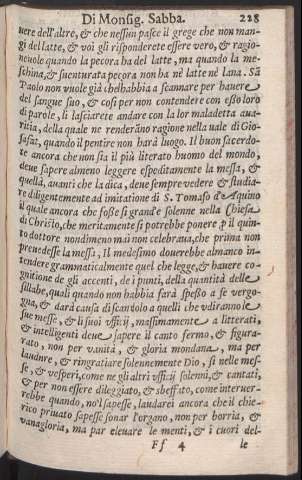 Di Monsig. Sabba. 228
uere dell'altre, & che nessun pasce il grege che non man-
gi del latte, & voi gli risponderete essere vero, & ragio-
neuole quando la pecora ha del latte, ma quando la me-
schina, & suenturata pecora non ha nè latte nè lana. Sã
Paolo non vuole già che habbia a scannare per hauere
del sangue suo, & così per non contendere con essoloro
di parole, li lasciarete andare con la lor maladetta aua-
ritia, della quale ne renderãno ragione nella uale di Gio-
safat, quando il pentire non harà luogo. Il buon sacerdo-
te ancora che non sia il più literato huomo del mondo,
deue sapere almeno leggere espeditamente la messa, &
quella, auanti che la dica, deue sempre vedere & studia-
re diligentemente ad imitatione di S. Tomaso d'Aquino
il quale ancora che fosse sì grande solenne nella Chiesa
di Christo, che meritamente si potrebbe ponere p il quin-
to dottore nondimeno mai non celebraua, che prima non
preuedesse la messa, Il medesimo douerebbe almanco in-
tendere grammaticalmente quel che legge, & hauere co-
gnitione de gli accenti, de i punti, della quantità delle
sillabe, quali quando non habbia farà spesso a se vergo-
gna, & darà causa di scandolo a quelli che vdiranno le
sue messe, & li suoi vffitij, massimamente a litterati,
& intelligenti deue sapere il canto fermo, & figura-
rato, non per vanità, & gloria mondana, ma per
laudare, & ringratiare solennemente Dio, sì nelle mes-
se, & vesperi, come ne gli altri vffitij solenni, & cantati,
& per non essere dileggiato, & sbeffato, come interuer-
rebbe quando, no'l sapesse, laudarei ancora che il chie-
rico priuato sapesse sonar l'organo, non per borria, &
vanagloria, ma par eleuare le menti, & i cuori del-
Ff 4 le